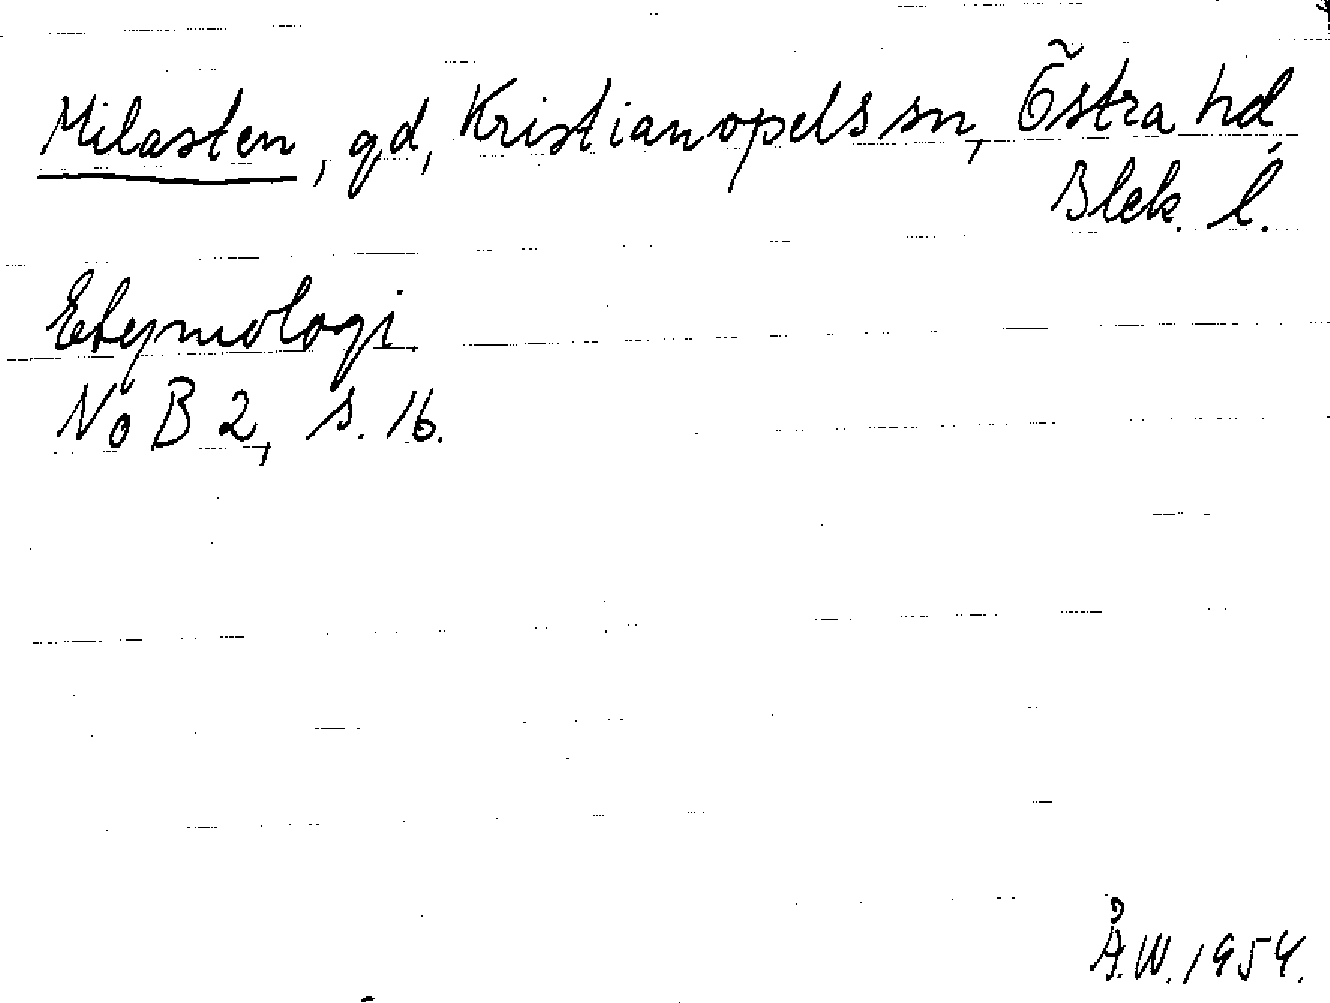 Milasten, gd, Kristianopels sn, Östra hd,
Blek. l.
Etymologi.
NoB 2, s. 16.
Å.W. 1954.